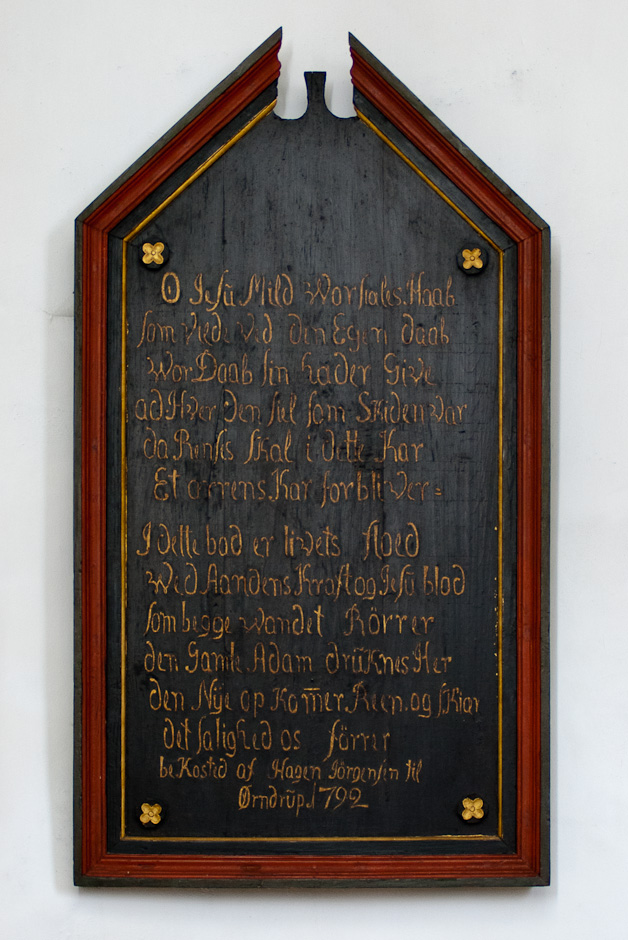 O Jesũ Mild Wor siales Haab
som viede ved den Egen daab
Wor Daab sin hader Give
ad Hver den siel som Skiden var
da Rensis skal i dette Kar
Et Kar forbliver =
I dette bad er livets floed
Wed Aandens Kraft og Jesũ blod
som begge wandet Rörrer
den Gamle Adam drũknes Her
den Nije op Kom̄er Reen og skiar
det salighed os förrer
be Kostid af Hagen Jörgensen til
Ørndrũp 1792